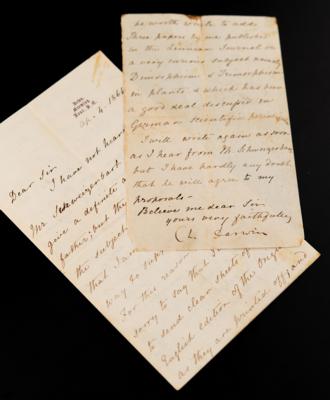 Down,
Bromley,
Kent. S.E.
Ap. 4. 1866
Dear Sir
I have not heard
Mr Schweizerbart
give a definite a
farther; but th
the subject
that I am
way to supp
For this reason
sorry to say that I
to send clean sheets of
English edition of the Orig
as they are printed off; and
be worth while to add
three papers by me published
in the Linnean Journal on
a very curious subject namely
Dimorphism & Trimorphism
in plants & which has been
a good deal discussed in
German Scientific periodicals
I will write again as soon
as I hear from M. Schweizerbart
but I have hardly any doubt
that he will agree to my
proposals—
Believe me dear Sir
yours very faithfully
Ch. Darwin